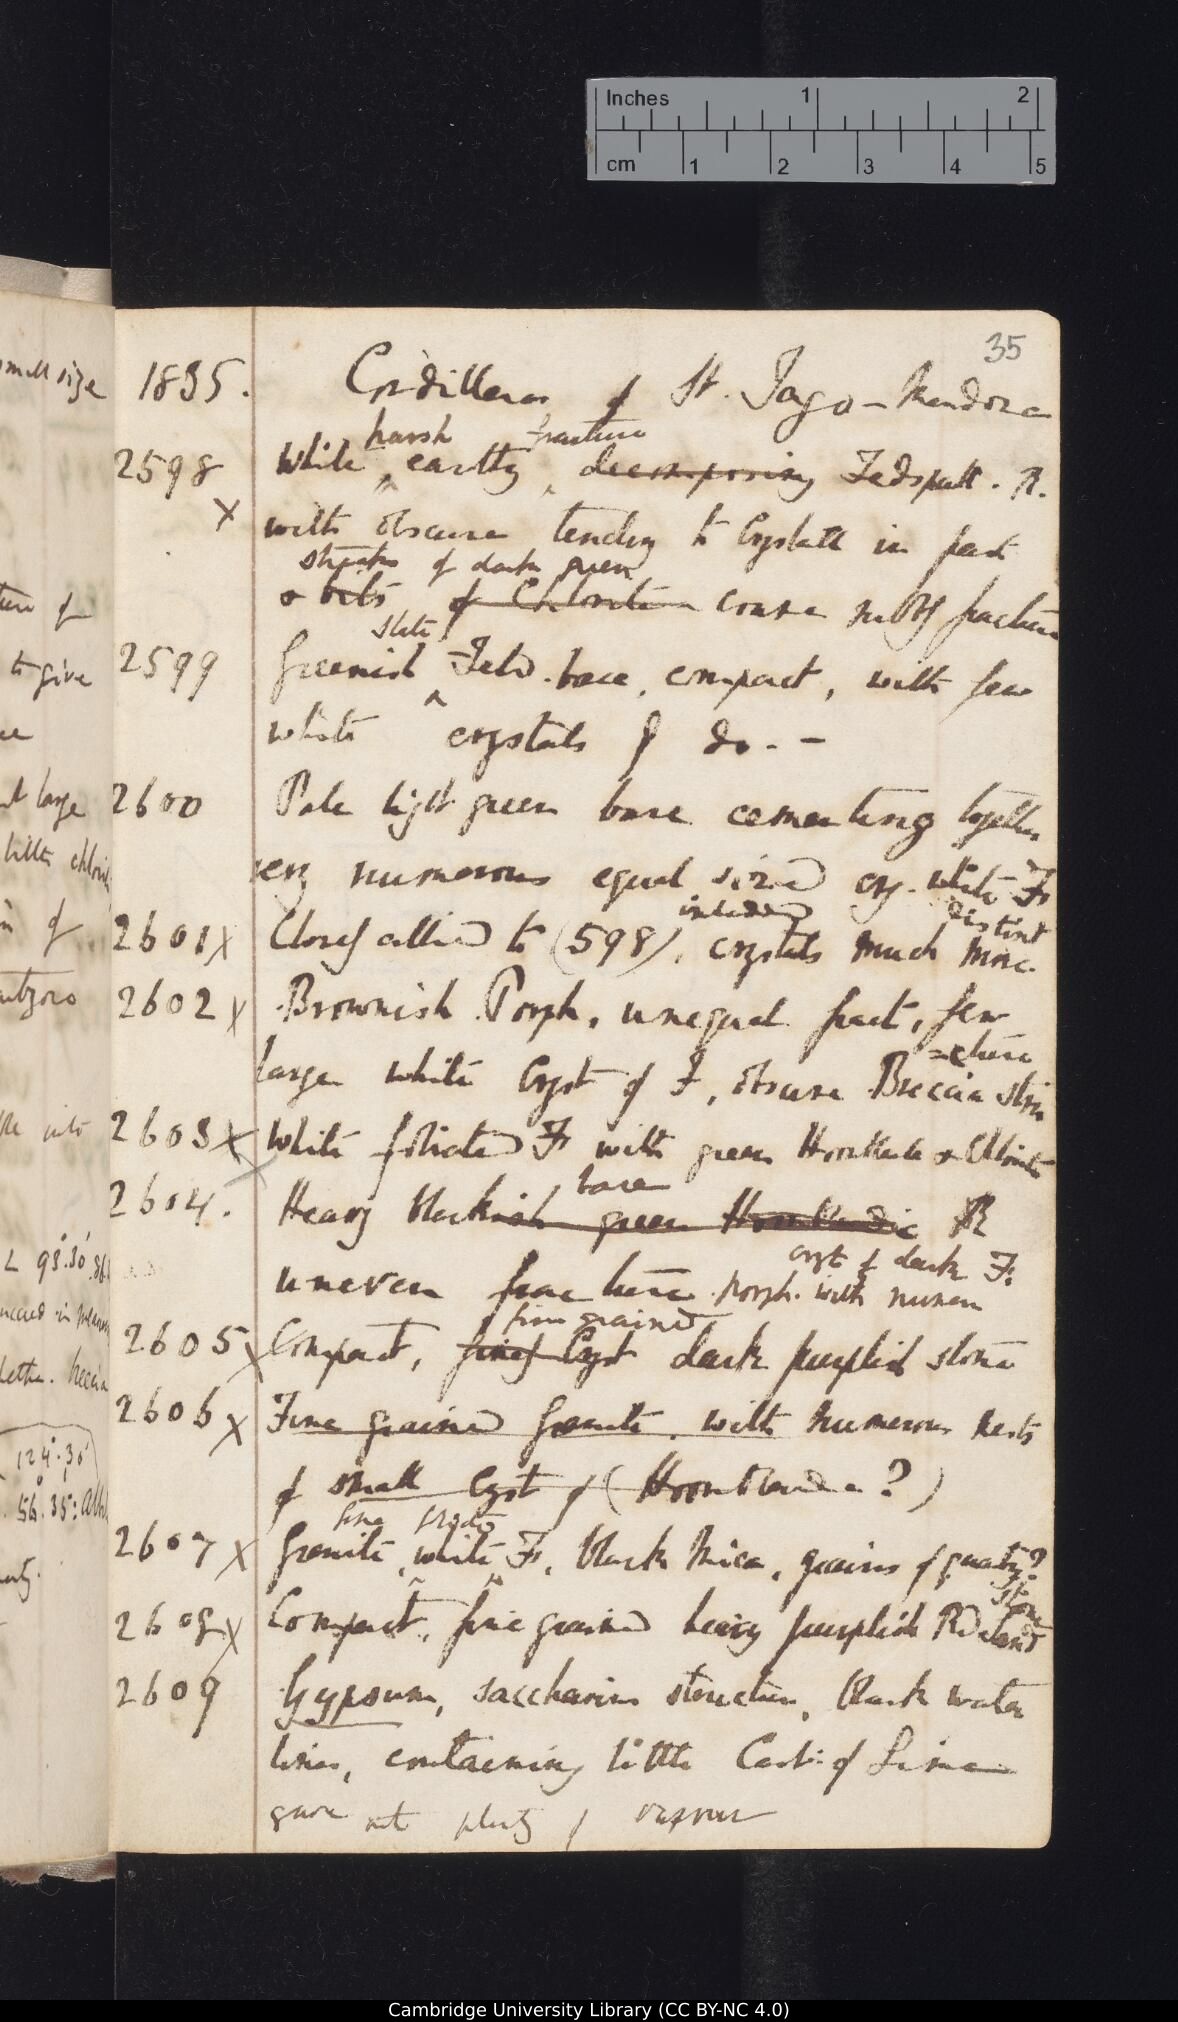 Inches 1 2
cm 1 2 3 4 5
35
1835. Cordilleras of St. Jago - Mendoza
harsh fracture
2598 White ^ earthy ^ decomposing Fedspath. R.
X with obscure tendcy to Crystall in part
streaks of dark green
& bits of Chlorite coarse fracture
slate
2599 Greenish ^ Feld. base, compact, with few
white crystals of do. -
2600 Pale light green base cementing together
very numerous equal sized cry. white F:
included distinct
2601 X Closely allied to (598), crystals much more
2602 X Brownish Porph, unequal fract, few
=cture
large white Cryst of F, obscure Breccia stru
2603 X White foliated F: with green Hornblende & Chlorite
base
2604. Heavy blackish green Hornblendic R
cryst of dark F:
uneven fracture porph. with numer
fine grained
2605 X Compact, finely Cryst dark purplish stone
2606 X Fine grained Granite, with numerous nests
of small Cryst of (Hornblende?)
fine
2607 X Granite ^ white ^ F:, black Mica, grains of quartz?
stone
2608 X Compact, fine grained heavy purplish Rd sand
2609 Gypsum, saccharine structure, black water
lines, containing little Carb: of Lime
gave not plenty of vapour
small size
ture of
to give
large
little chlorite
of
into
L 93°.30'
124°.30'
56°.35'
Cambridge University Library (CC BY-NC 4.0)